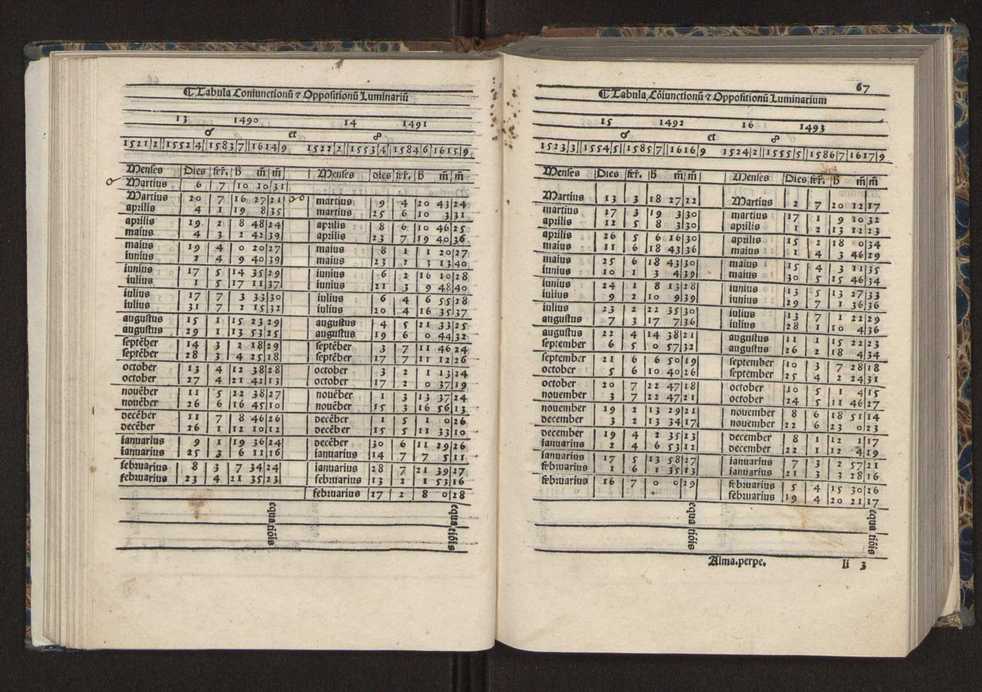 Tabula Coniunctionũ ⁊ Oppositionũ Luminariũ
13 1490 14 1491
☌ et ☍
1521 2 1552 4 1583 7 1614 9 1522 2 1553 4 1584 6 1615 9
Menses Dies fer̃. h m̃ m̃ Menses dies fer̃. h m̃ m̃
Martius 6 7 10 10 31
Martius 20 7 16 27 21 martius 9 4 20 43 24
aprilis 4 1 19 8 35 martius 25 6 10 3 31
aprilis 19 2 8 48 24 aprilis 8 6 10 46 25
maius 4 3 2 42 39 aprilis 23 7 19 40 36
maius 19 4 0 20 27 maius 8 1 1 20 27
iunius 2 4 9 40 39 maius 23 2 3 13 40
iunius 17 5 14 35 29 iunius 6 2 16 10 28
iulius 1 5 17 11 37 iunius 21 3 9 48 40
iulius 17 7 3 33 30 iulius 6 4 6 55 28
iulius 31 7 2 15 32 iulius 20 4 16 35 37
augustus 15 1 15 23 29 augustus 4 5 21 33 25
augustus 29 1 13 53 25 augustus 19 6 0 44 32
septẽber 14 3 2 18 29 septẽber 3 7 11 46 24
septẽber 28 3 4 25 18 septẽber 17 7 11 12 26
october 13 4 12 38 28 october 3 2 1 13 24
october 27 4 21 42 13 october 17 2 0 37 19
novẽber 11 5 22 38 27 novẽber 1 3 13 37 24
novẽber 26 6 16 45 10 novẽber 15 3 16 56 13
decẽber 11 7 8 46 26 decẽber 1 5 1 0 26
decẽber 26 1 12 10 12 decẽber 15 5 11 33 10
ianuarius 9 1 19 36 24 decẽber 30 6 11 29 26
ianuarius 25 3 6 11 16 ianuarius 14 7 7 5 11
februarius 8 3 7 34 24 ianuarius 28 7 21 39 27
februarius 23 4 21 35 23 februarius 13 2 1 53 16
februarius 27 2 8 0 28
equa tiõis equa tiõis
67
Tabula Cõiunctionũ ⁊ Oppositionũ Luminarium
15 1492 16 1493
☌ et ☍
1523 3 1554 5 1585 7 1616 9 1524 2 1555 5 1586 7 1617 9
Menses Dies fer̃. h m̃ m̃ Menses Dies fer̃. h m̃ m̃
Martius 13 3 18 27 22 Martius 2 7 20 12 17
martius 17 3 19 3 30 martius 17 1 9 10 32
aprilis 12 5 8 3 30 aprilis 1 2 13 12 23
aprilis 26 5 6 16 30 aprilis 15 2 18 0 34
maius 11 6 18 43 36 maius 1 4 3 46 29
maius 25 6 18 43 30 maius 15 4 3 11 35
iunius 10 1 3 4 39 maius 30 5 15 46 34
iunius 24 1 8 13 28 iunius 13 5 13 27 33
iulius 9 2 10 9 39 iunius 29 7 1 36 36
iulius 23 2 22 35 30 iulius 13 7 1 22 29
augustus 7 3 17 7 36 iulius 28 1 10 4 36
augustus 22 4 14 38 21 augustus 11 1 15 22 23
september 6 5 0 57 32 augustus 26 2 18 4 34
september 21 6 6 50 19 september 10 3 7 28 18
october 5 6 10 40 26 september 25 4 2 24 31
october 20 7 22 47 18 october 10 5 1 4 15
november 3 7 22 47 21 october 24 5 11 46 27
november 19 2 13 29 21 november 8 6 18 51 14
december 3 2 13 34 17 november 22 6 23 0 23
december 19 4 2 35 23 december 8 1 12 1 17
ianuarius 2 4 6 53 12 december 22 1 12 4 19
ianuarius 17 5 13 58 27 ianuarius 7 3 2 57 21
februarius 1 6 1 35 13 ianuarius 21 3 3 28 16
februarius 16 7 0 0 29 februarius 5 4 15 30 26
februarius 19 4 20 21 17
equa tiõis equa tiõis
Alma.perpe. li 3